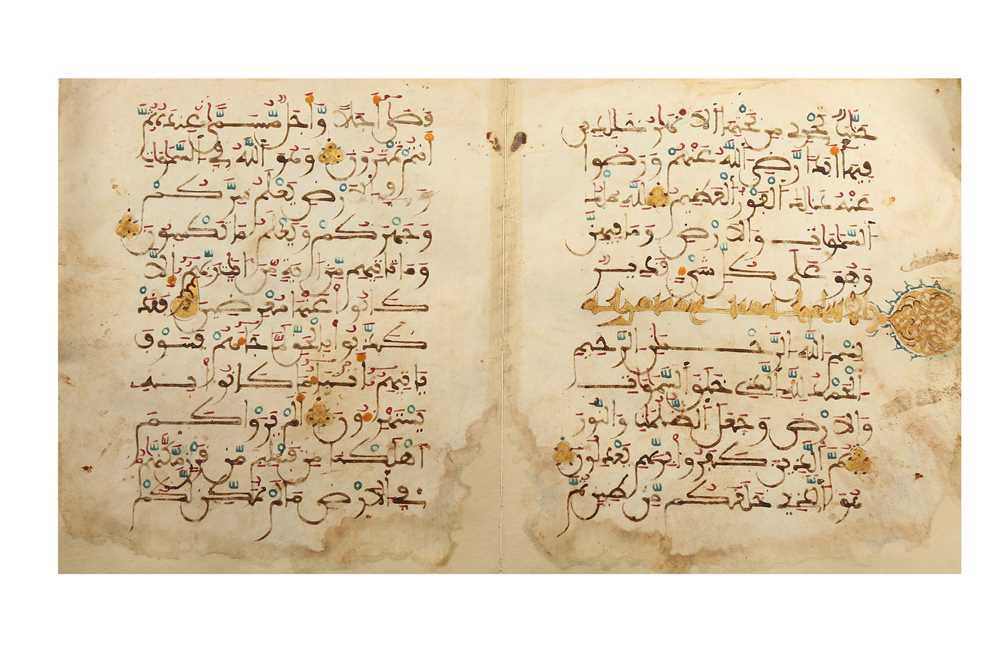 جَنَّٰتٌ تَجْرِي مِن تَحْتِهَا ٱلَانْهَٰرُ خَٰلِدِينَ
فِيهَا أَبَدًا رَّضِيَ ٱللَّهُ عَنْهُمْ وَرَضُوا
عَنْهُ ذَٰلِكَ ٱلْفَوْزُ ٱلْعَظِيمُ لِلَّهِ مُلْكُ
ٱلسَّمَٰوَٰتِ وَٱلَارْضِ وَمَا فِيهِنَّ
وَهُوَ عَلَىٰ كُلِّ شَيْءٍ قَدِيرٌ
بِسْمِ ٱللَّهِ ٱلرَّحْمَٰنِ ٱلرَّحِيمِ
ٱلْحَمْدُ لِلَّهِ ٱلَّذِي خَلَقَ ٱلسَّمَٰوَٰتِ
وَٱلَارْضَ وَجَعَلَ ٱلظُّلُمَٰتِ وَٱلنُّورَ
ثُمَّ ٱلَّذِينَ كَفَرُوا بِرَبِّهِمْ يَعْدِلُونَ
هُوَ ٱلَّذِي خَلَقَكُم مِّن طِينٍ ثُمَّ
قَضَىٰ أَجَلًا وَأَجَلٌ مُّسَمًّى عِندَهُ ثُمَّ
أَنتُمْ تَمْتَرُونَ وَهُوَ ٱللَّهُ فِي ٱلسَّمَٰوَٰتِ
وَفِي ٱلَارْضِ يَعْلَمُ سِرَّكُمْ
وَجَهْرَكُمْ وَيَعْلَمُ مَا تَكْسِبُونَ
وَمَا تَاتِيهِم مِّنَ ايَةٍ مِّنَ ايَٰتِ رَبِّهِمُ إِلَّا
كَانُوا عَنْهَا مُعْرِضِينَ فَقَدْ
كَذَّبُوا بِٱلْحَقِّ لَمَّا جَاءَهُمْ فَسَوْفَ
يَاتِيهِمُ أَنبَٰؤُا مَا كَانُوا بِهِ
يَسْتَهْزِءُونَ أَلَمْ يَرَوْا كَمَ
أَهْلَكْنَا مِن قَبْلِهِم مِّن قَرْنٍ مَّكَّنَّٰهُمْ
فِي ٱلَارْضِ مَا لَمْ نُمَكِّن لَّكُمْ